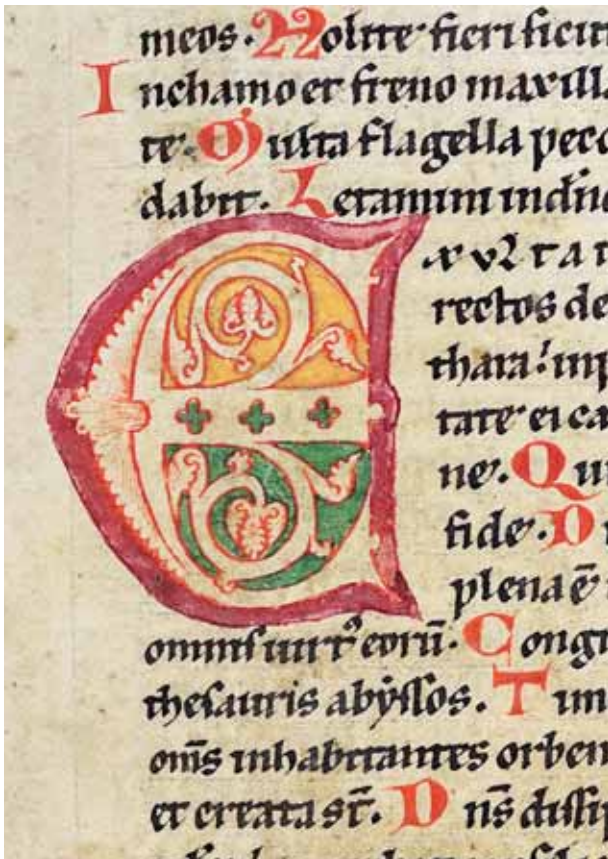 meos. Nolite fieri sicu
In chamo et freno maxilla
te. Multa flagella pecc
dabit. Letamini in dn̄o
EXULTAT
rectos de
thara: inp
tate ei ca
ne. Qui
fide. D
plena ē
omnis uirt᾽ eorū. Congr
thesauris abyssos. Tim
om̄s inhabitantes orbem
et creata st̄. Dn̄s dissip